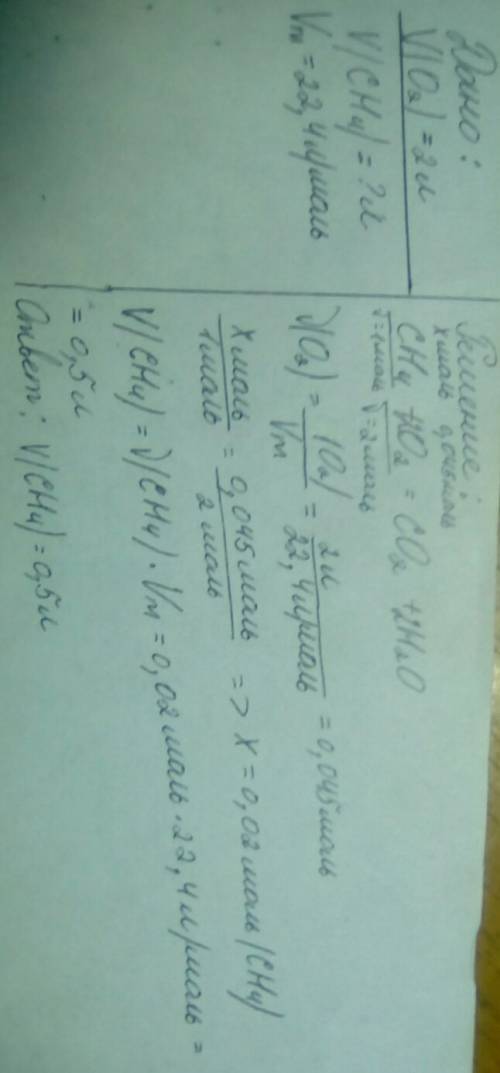 Дано:
V(O₂) = 2 л
V(CH₄) = ? л
Vm = 22,4 л/моль
Решение:
х моль 0,045 моль
CH₄ + 2O₂ = CO₂ + 2H₂O
ν=1 моль ν=2 моль
ν(O₂) = (O₂)/Vm = 2 л/22,4 л/моль = 0,045 моль
х моль/1 моль = 0,045 моль/2 моль => х = 0,02 моль (CH₄)
V(CH₄) = ν(CH₄) · Vm = 0,02 моль · 22,4 л/моль =
= 0,5 л
Ответ: V(CH₄) = 0,5 л